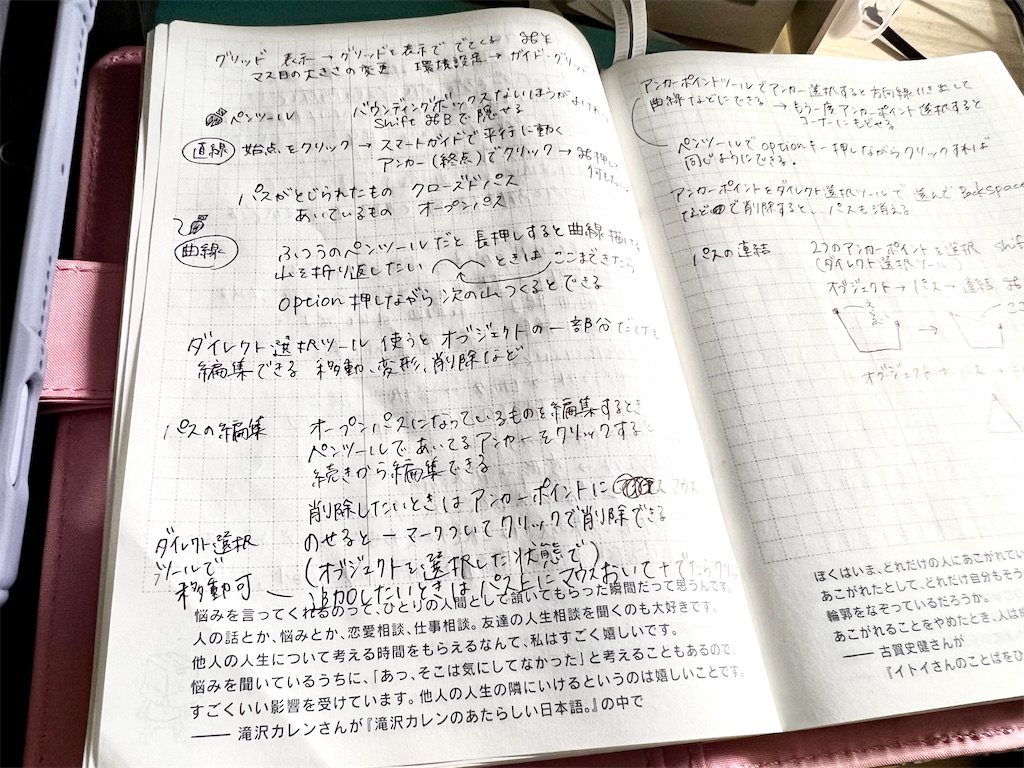 グリッド 表示→グリッドを表示で でてくる ⌘¥
マス目の大きさの変更 環境設定→ガイド・グリッド
ペンツール バウンディングボックスないほうがよければ
Shift ⌘Bで隠せる
直線 始点をクリック→スマートガイドで平行に動く
アンカー(終点)でクリック→⌘押し
パスがとじられたもの クローズドパス
あいているもの オープンパス
曲線 ふつうのペンツールだと長押しすると曲線描ける
山を折り返したい ときは ここまできたら
option押しながら次の山つくるとできる
ダイレクト選択ツール使うとオブジェクトの一部分だけを
編集できる 移動、変形、削除など
パスの編集 オープンパスになっているものを編集するとき
ペンツールであいてるアンカーをクリックすると
続きから編集できる
削除したいときはアンカーポイントに マウス
のせると-マークついてクリックで削除できる
ダイレクト選択
ツールで
移動可
(オブジェクトを選択した状態で)
追加したいときはパス上にマウスおいて+でたらクリッ
悩みを言ってくれるのって、ひとりの人間として頷いてもらった瞬間だって思うんです。
人の話とか、悩みとか、恋愛相談、仕事相談。友達の人生相談を聞くのも大好きです。
他人の人生について考える時間をもらえるなんて、私はすごく嬉しいです。
悩みを聞いているうちに、「あっ、そこは気にしてなかった」と考えることもあるので、
すごくいい影響を受けています。他人の人生の隣にいけるというのは嬉しいことです。
── 滝沢カレンさんが『滝沢カレンのあたらしい日本語。』の中で
アンカーポイントツールでアンカー選択すると方向線引き出して
曲線などにできる→もう一度アンカーポイント選択すると
コーナーにもどせる
ペンツールでoptionキー押しながらクリックすれば
同じようにできる。
アンカーポイントをダイレクト選択ツールで選んでBackspace
などで削除すると、パスも消える
パスの連結 2つのアンカーポイントを選択 shif
(ダイレクト選択ツール)
オブジェクト→パス→連結 ⌘
オブジェクト→パス→
ぼくはいま、どれだけの人にあこがれてい
あこがれたとして、どれだけ自分もそう
輪郭をなぞっているだろうか。
あこがれることをやめたとき、人は
── 古賀史健さんが
『イトイさんのことばをひ